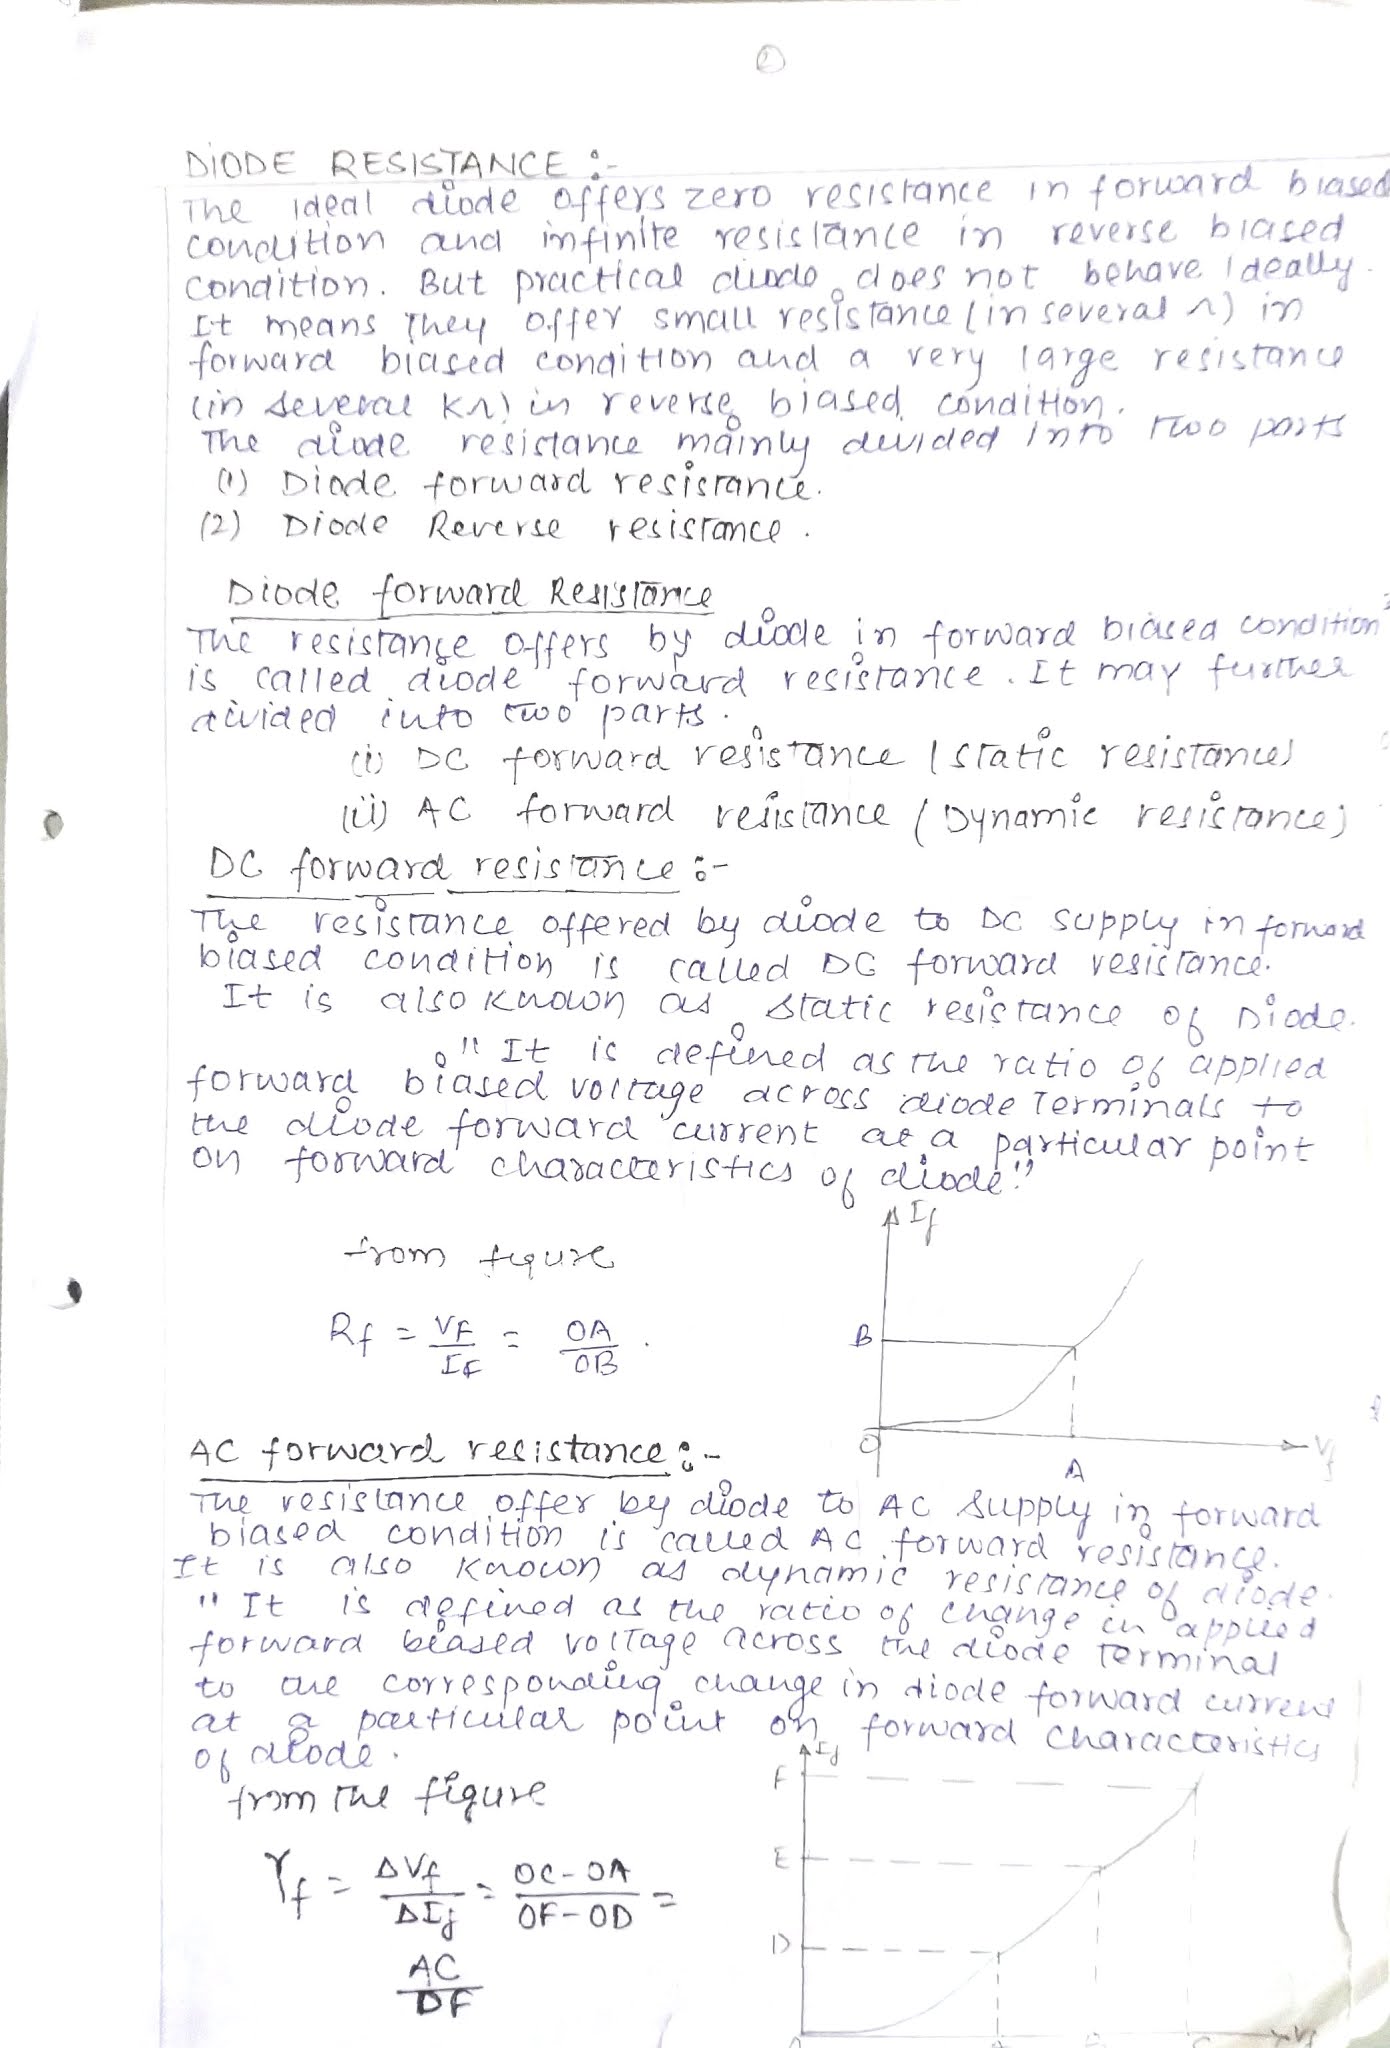 2
DIODE RESISTANCE :-
The ideal diode offers zero resistance in forward biased
condition and infinite resistance in reverse biased
condition. But practical diode does not behave ideally.
It means they offer small resistance (in several Ω) in
forward biased condition and a very large resistance
(in several KΩ) in reverse biased condition.
The diode resistance mainly devided into two parts
(1) Diode forward resistance.
(2) Diode Reverse resistance.
Diode forward Resistance
The resistance offers by diode in forward biased condition
is called diode forward resistance. It may further
divided into two parts.
(i) DC forward resistance (static resistance)
(ii) AC forward resistance (Dynamic resistance)
DC forward resistance :-
The resistance offered by diode to DC supply in forward
biased condition is called DC forward resistance.
It is also known as static resistance of Diode.
" It is defined as the ratio of applied
forward biased voltage across diode Terminals to
the diode forward current at a particular point
on forward characteristics of diode."
If
from figure
Rf = VF/IF = OA/OB .
B
O
A
Vf
AC forward resistance :-
The resistance offer by diode to AC supply in forward
biased condition is called AC forward resistance.
It is also known as dynamic resistance of diode.
" It is defined as the ratio of change in applied
forward biased voltage across the diode Terminal
to the corresponding change in diode forward current
at a particular point on forward characteristics
of diode.
If
from the figure
F
E
D
rf = ΔVf/ΔIf = OC-OA/OF-OD =
AC/DF
A
B
C
Vf